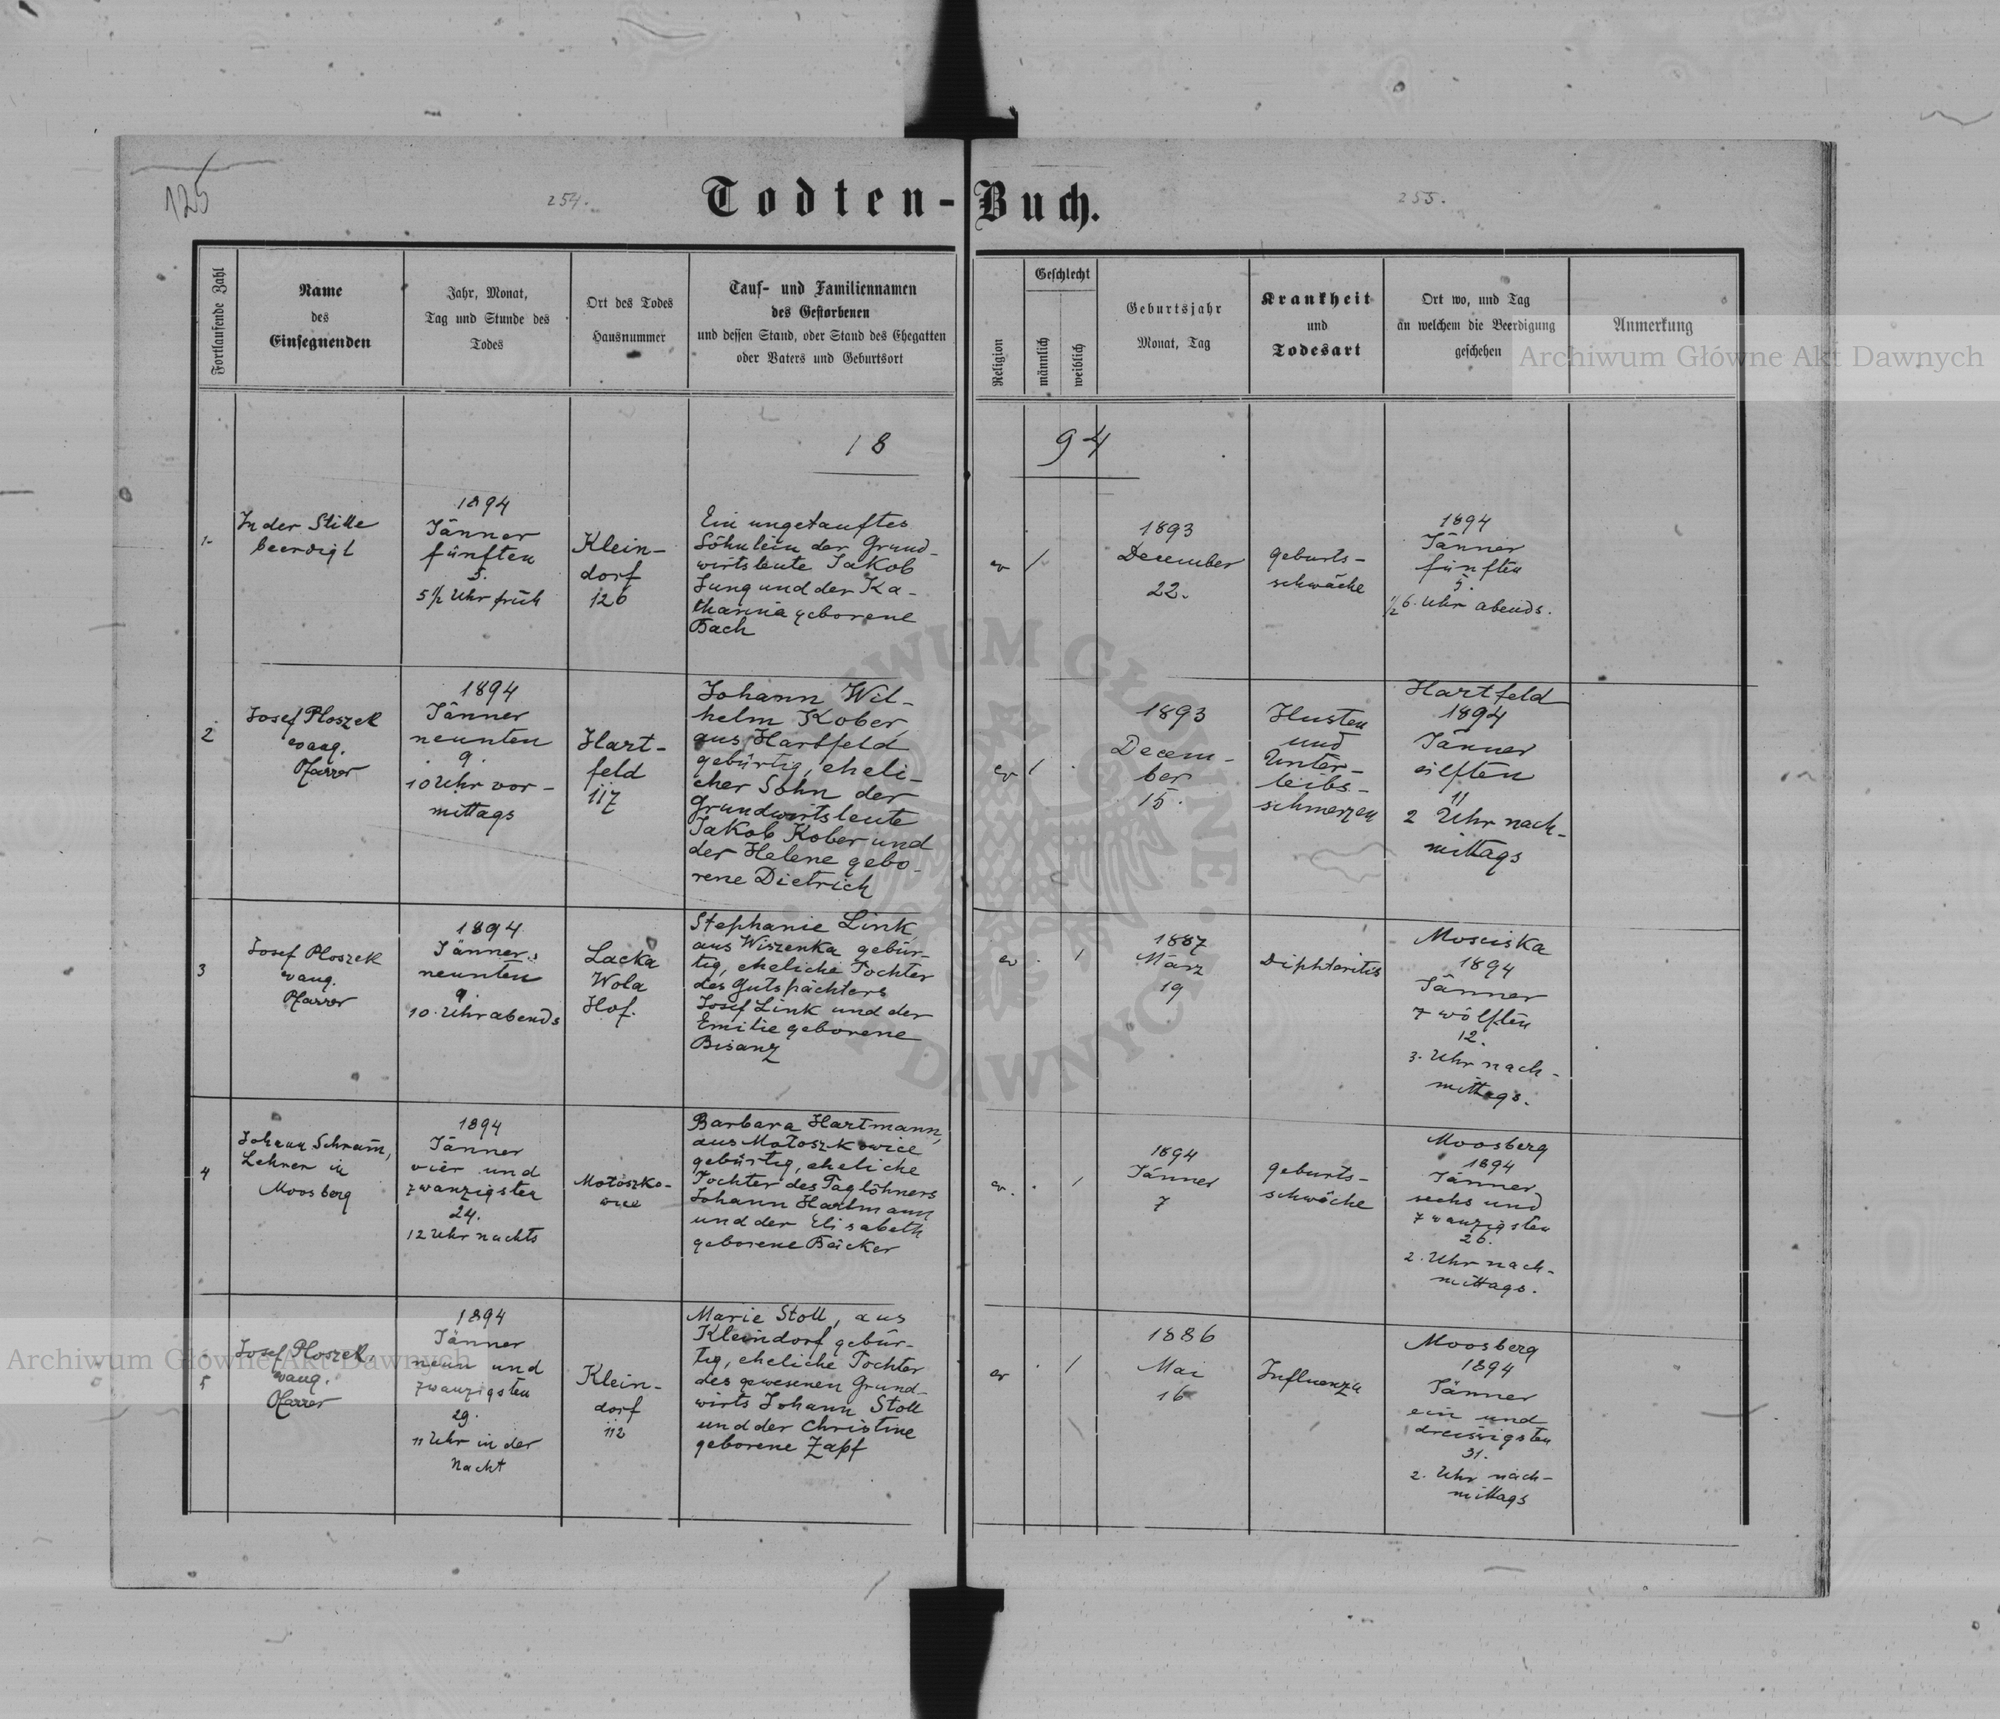 125
254.
255.
Todten-Buch.
Fortlaufende Zahl
Name
des
Einsegnenden
Jahr, Monat,
Tag und Stunde des
Todes
Ort des Todes
Hausnummer
Tauf- und Familiennamen
des Gestorbenen
und dessen Stand, oder Stand des Ehegatten
oder Vaters und Geburtsort
Religion
Geschlecht
männlich
weiblich
Geburtsjahr
Monat, Tag
Krankheit
und
Todesart
Ort wo, und Tag
an welchem die Beerdigung
geschehen
Anmerkung
Archiwum Główne Akt Dawnych
18 94
1-
In der Stille
beerdigt
1894
Jänner
fünften
5.
5½ Uhr früh
Klein-
dorf
126
Ein ungetauftes
Söhnlein der Grund-
wirtsleute Jakob
Jung und der Ka-
tharina geborene
Bach
ev
/
1893
December
22.
geburts-
schwäche
1894
Jänner
fünften
5.
½6. Uhr abends.
2
Josef Ploszek
evang.
Pfarrer
1894
Jänner
neunten
9.
10 Uhr vor-
mittags
Hart-
feld
117
Johann Wil-
helm Kober,
aus Hartfeld
gebürtig, eheli-
cher Sohn der
Grundwirtsleute
Jakob Kober und
der Helene gebo-
rene Dietrich
ev
/
1893
Decem-
ber
15.
Husten
und
Unter-
leibs-
schmerzen
Hartfeld
1894
Jänner
eilften
11
2 Uhr nach-
mittags
3
Josef Ploszek
evang.
Pfarrer
1894
Jänner
neunten
9.
10. Uhr abends
Lacka
Wola
Hof.
Stephanie Link
aus Wiszenka gebür-
tig, eheliche Tochter
des Gutspächters
Josef Link und der
Emilie geborene
Bisanz
ev
/
1887
März
19
Diphteritis
Mosciska
1894
Jänner
zwölften
12.
3. Uhr nach-
mittags.
4
Johann Schram,
Lehrer in
Moosberg
1894
Jänner
vier und
zwanzigsten
24.
12 Uhr nachts
Motoszko-
wice
Barbara Hartmann,
aus Motoszkowice
gebürtig, eheliche
Tochter des Taglöhners
Johann Hartmann
und der Elisabeth
geborene Bäcker
ev.
/
1894
Jänner
7
geburts-
schwäche
Moosberg
1894
Jänner
sechs und
zwanzigsten
26.
2. Uhr nach-
mittags.
5
Josef Ploszek,
evang.
Pfarrer
1894
Jänner
neun und
zwanzigsten
29.
11 Uhr in der
Nacht
Klein-
dorf
112
Marie Stoll, aus
Kleindorf gebür-
tig, eheliche Tochter
des gewesenen Grund-
wirts Johann Stoll
und der Christine
geborene Zapf
ev
/
1886
Mai
16
Influenza
Moosberg
1894
Jänner
ein und
dreissigsten
31.
2. Uhr nach-
mittags
Archiwum Główne Akt Dawnych